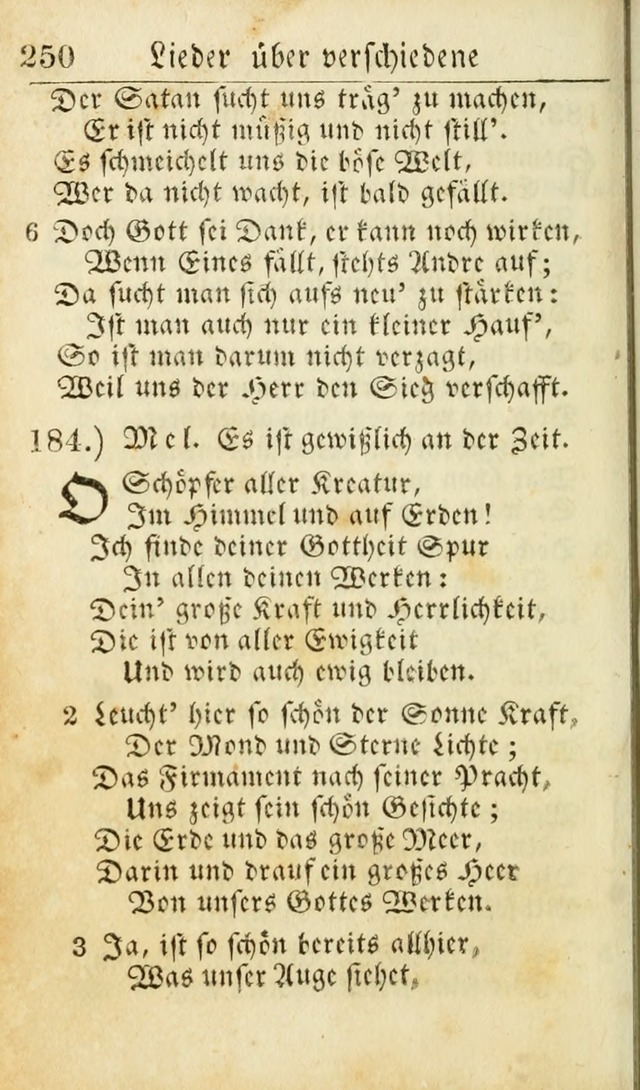 250 Lieder über verschiedene
Der Satan sucht uns träg' zu machen,
Er ist nicht müßig und nicht still'.
Es schmeichelt uns die böse Welt,
Wer da nicht wacht, ist bald gefällt.
6 Doch Gott sei Dank, er kann noch wirken,
Wenn Eines fällt, stehts Andre auf;
Da sucht man sich aufs neu' zu stärken:
Ist man auch nur ein kleiner Hauf',
So ist man darum nicht verzagt,
Weil uns der Herr den Sieg verschafft.
184.) Mel. Es ist gewißlich an der Zeit.
O Schöpfer aller Kreatur,
Im Himmel und auf Erden!
Ich finde deiner Gottheit Spur
In allen deinen Werken:
Dein' große Kraft und Herrlichkeit,
Die ist von aller Ewigkeit
Und wird auch ewig bleiben.
2 Leucht' hier so schön der Sonne Kraft,
Der Mond und Sterne Lichte;
Das Firmament nach seiner Pracht,
Uns zeigt sein schön Gesichte;
Die Erde und das große Meer,
Darin und drauf ein großes Heer
Von unsers Gottes Werken.
3 Ja, ist so schön bereits allhier,
Was unser Auge siehet,